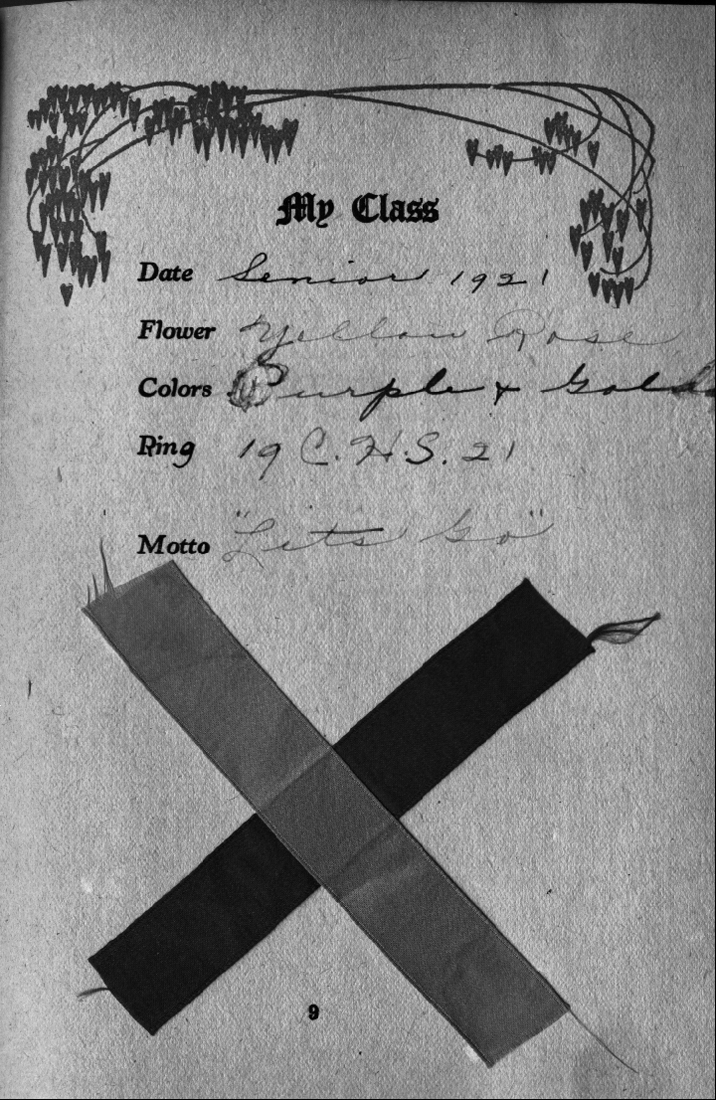 My Class
Date Senior 1921
Flower Yellow Rose
Colors Purple & Gold
Ring 19 C.H.S. 21
Motto "Lets Go"
9